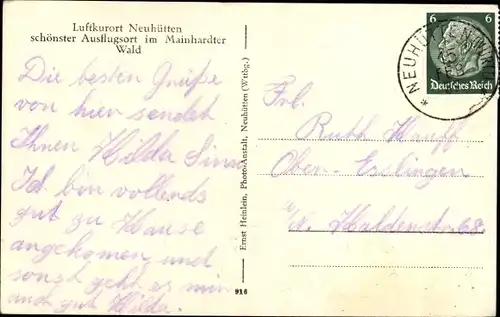 Luftkurort Neuhütten
schönster Ausflugsort im Mainhardter
Wald
Die besten Grüße
von hier sendet
Ihnen Hilda
Ich bin vollends
gut zu Hause
angekommen und
sonst geht es mir
auch gut Hilda.
Ernst Heinlein, Photo-Anstalt, Neuhütten (Wrtbg.)
916
6 6
Deutsches Reich
NEUHÜTTEN
Frl.
Ruth Hauff
Ober-Esslingen
a/N.
68